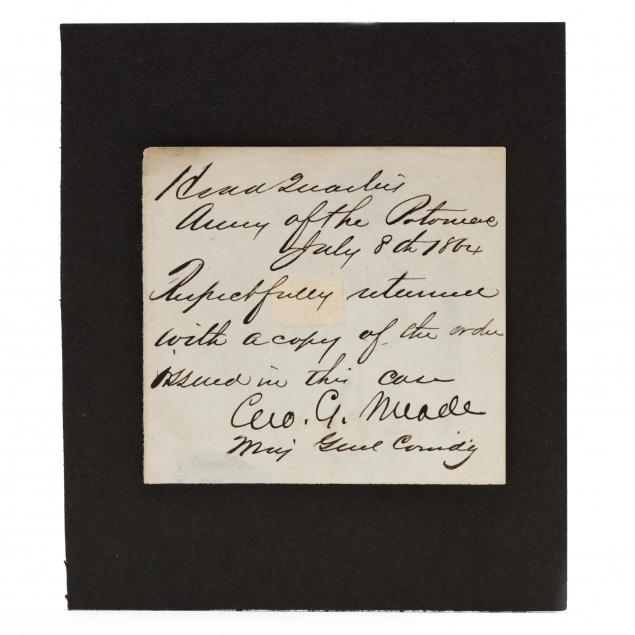 Head Quarters
Army of the Potomac
July 8th 1864
Respectfully returned
with a copy of the order
issued in this case
Geo. G. Meade
Maj Genl Comdg